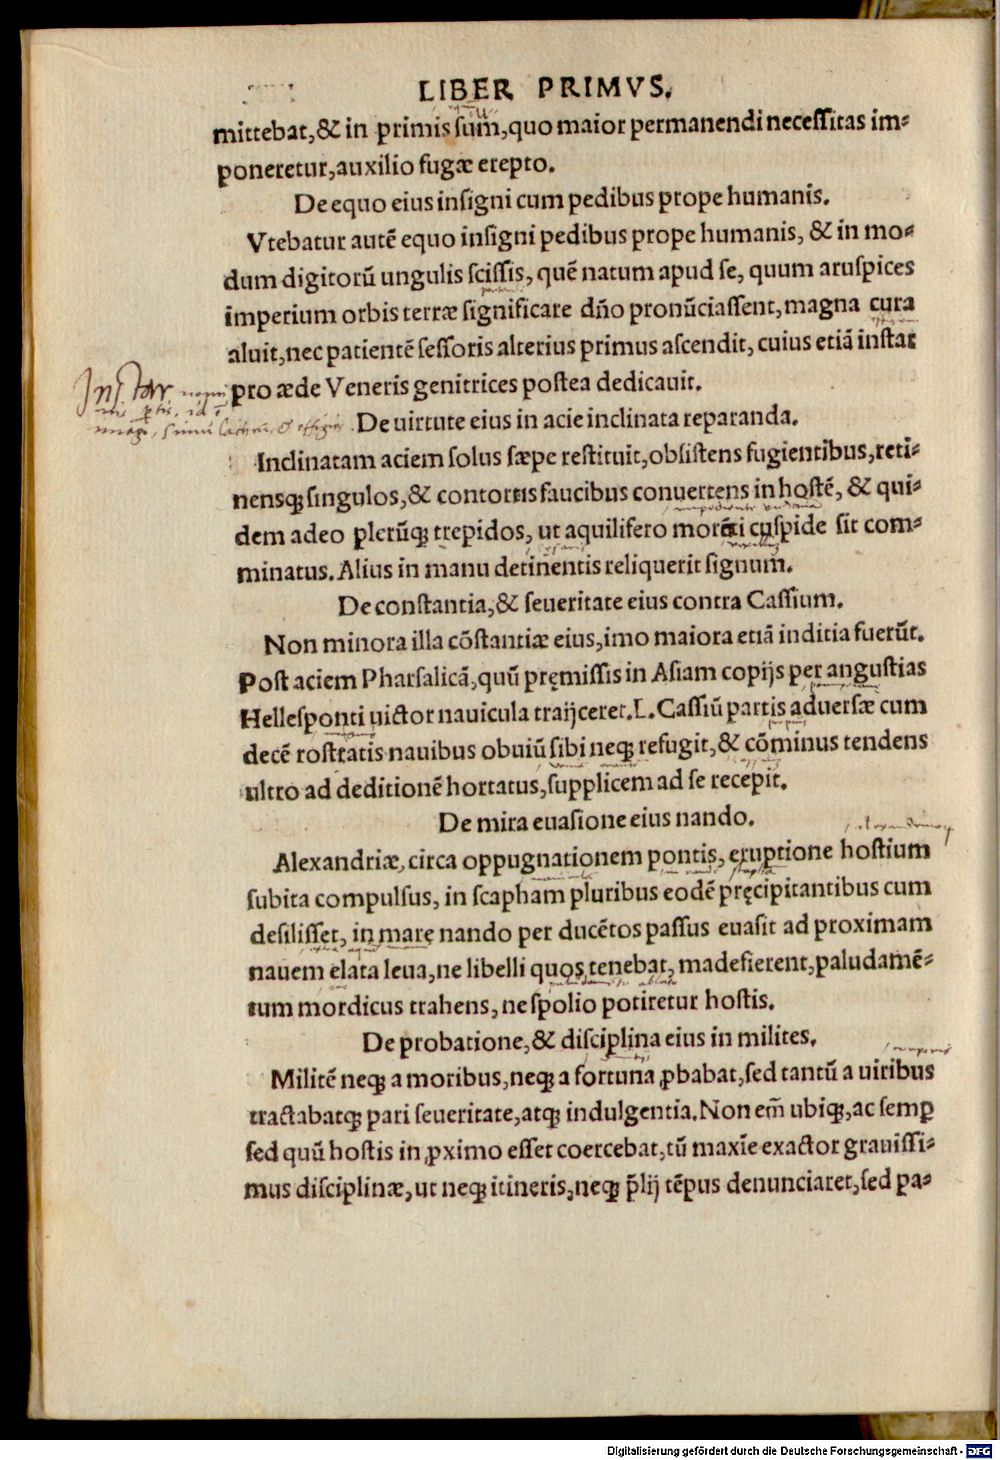 LIBER PRIMVS.
mittebat,& in primis sum,quo maior permanendi necessitas im-
poneretur,auxilio fugæ erepto.
De equo eius insigni cum pedibus prope humanis.
Vtebatur autē equo insigni pedibus prope humanis, & in mo-
dum digitorū ungulis scissis, quē natum apud se, quum aruspices
imperium orbis terræ significare dño pronūciassent,magna cura
aluit,nec patientē sessoris alterius primus ascendit, cuius etiā instar
pro æde Veneris genitrices postea dedicauit.
Instar
De uirtute eius in acie inclinata reparanda.
Inclinatam aciem solus sæpe restituit,obsistens fugientibus,reti-
nensq; singulos,& contortis faucibus conuertens in hostē, & qui-
dem adeo plerūq; trepidos, ut aquilifero morāti cuspide sit com-
minatus.Alius in manu detinentis reliquerit signum.
De constantia,& seueritate eius contra Cassium.
Non minora illa cōstantiæ eius,imo maiora etiā inditia fuerūt.
Post aciem Pharsalicā,quū pręmissis in Asiam copijs per angustias
Hellesponti uictor nauicula traijceret.L.Cassiū partis aduersæ cum
decē rostratis nauibus obuiū sibi neq; refugit,& cōminus tendens
ultro ad deditionē hortatus,supplicem ad se recepit.
De mira euasione eius nando.
Alexandriæ, circa oppugnationem pontis, eruptione hostium
subita compulsus, in scapham pluribus eodē pręcipitantibus cum
desilisset, in mare nando per ducētos passus euasit ad proximam
nauem elata leua,ne libelli quos tenebat, madefierent,paludamē-
tum mordicus trahens, ne spolio potiretur hostis.
De probatione,& disciplina eius in milites.
Militē neq; a moribus,neq; a fortuna ꝓbabat,sed tantū a uiribus
tractabatq; pari seueritate,atq; indulgentia.Non em̄ ubiq;,ac semꝑ
sed quū hostis in ꝓximo esset coercebat,tū maxīe exactor grauissi-
mus disciplinæ,ut neq; itineris,neq; p̄lij tēpus denunciaret,sed pa-
Digitalisierung gefördert durch die Deutsche Forschungsgemeinschaft - DFG